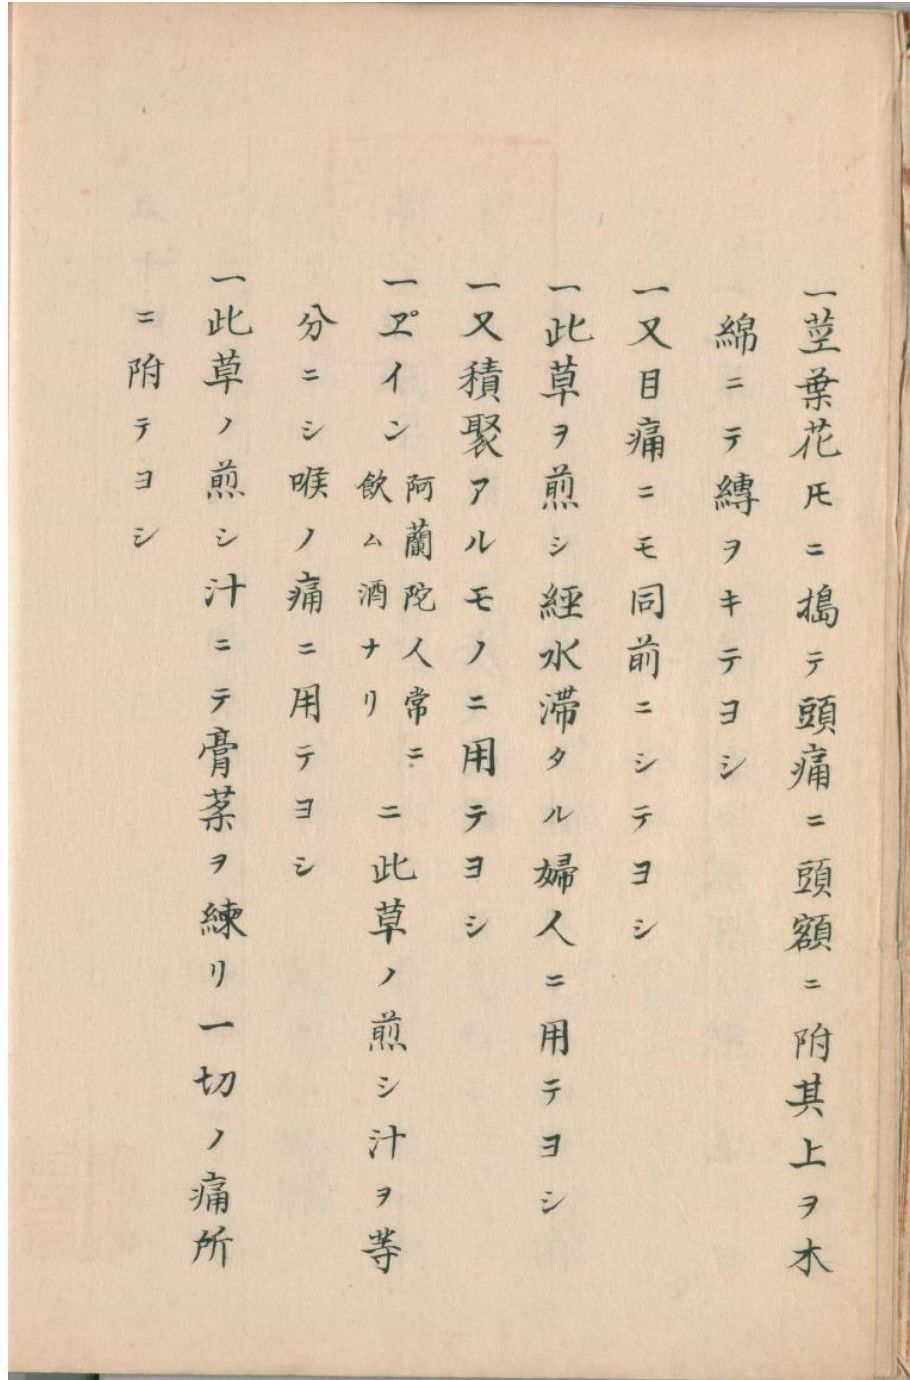 一莖葉花𪜈ニ搗テ頭痛ニ頭額ニ附其上ヲ木
綿ニテ縛ヲキテヨシ
一又目痛ニモ同前ニシテヨシ
一此草ヲ煎シ經水滞タル婦人ニ用テヨシ
一又積聚アルモノニ用テヨシ
一ヱ゚イン阿蘭陀人常ニ飲ム酒ナリニ此草ノ煎シ汁ヲ等
分ニシ喉ノ痛ニ用テヨシ
一此草ノ煎シ汁ニテ膏薬ヲ練リ一切ノ痛所
ニ附テヨシ